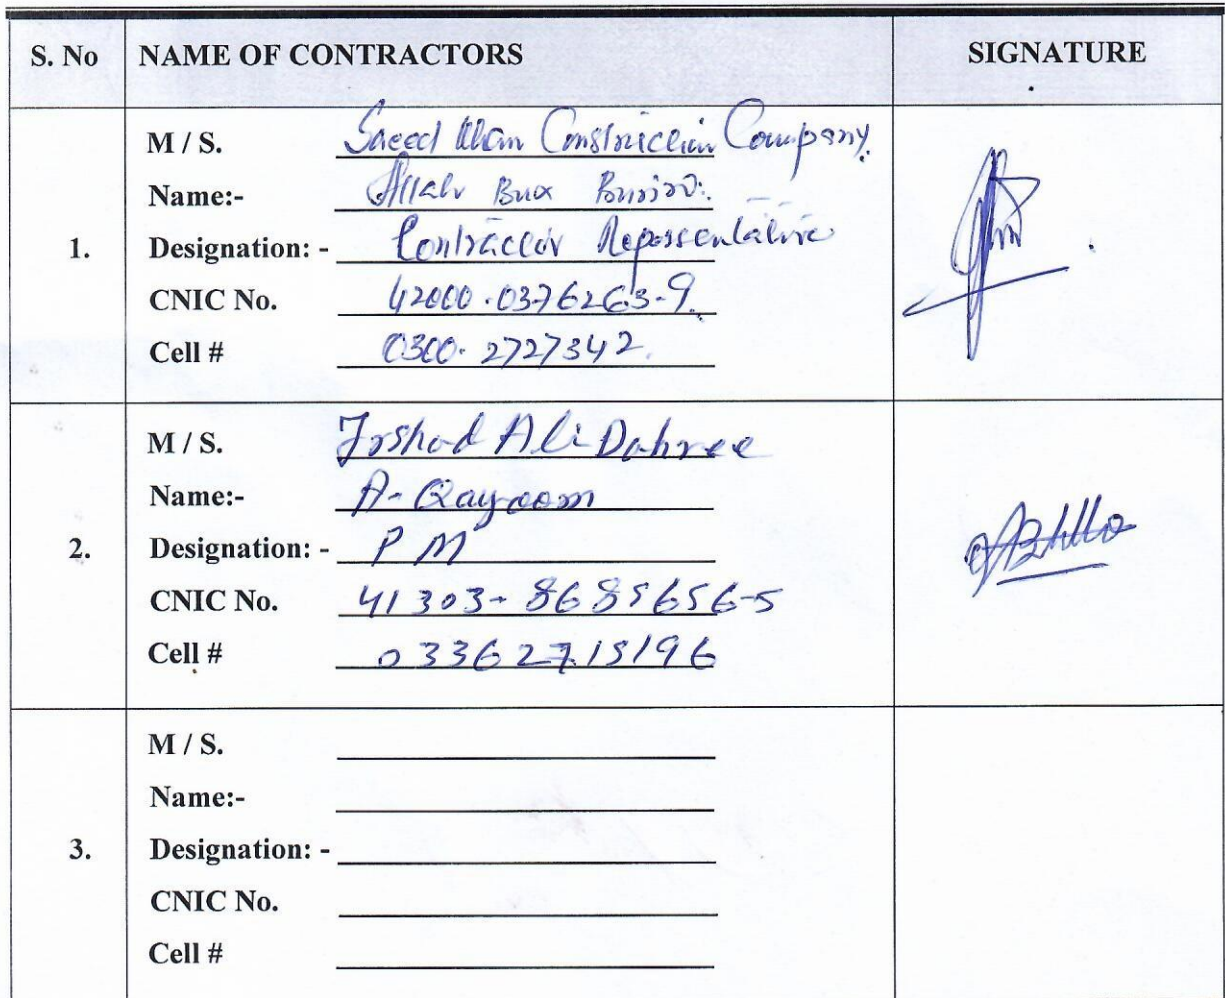 S. No NAME OF CONTRACTORS SIGNATURE
M / S. Saeed Khan Construction Company.
Name:- Allah Bux Buriro.
1. Designation: - Contractor Representative
CNIC No. 42000-0376263-9.
Cell # 0300-2727342.
M / S. Irshad Ali Dahree
Name:- A-Qayoom
2. Designation: - PM
CNIC No. 41303-8685656-5
Cell # 03362715196
M / S.
Name:-
3. Designation: -
CNIC No.
Cell #